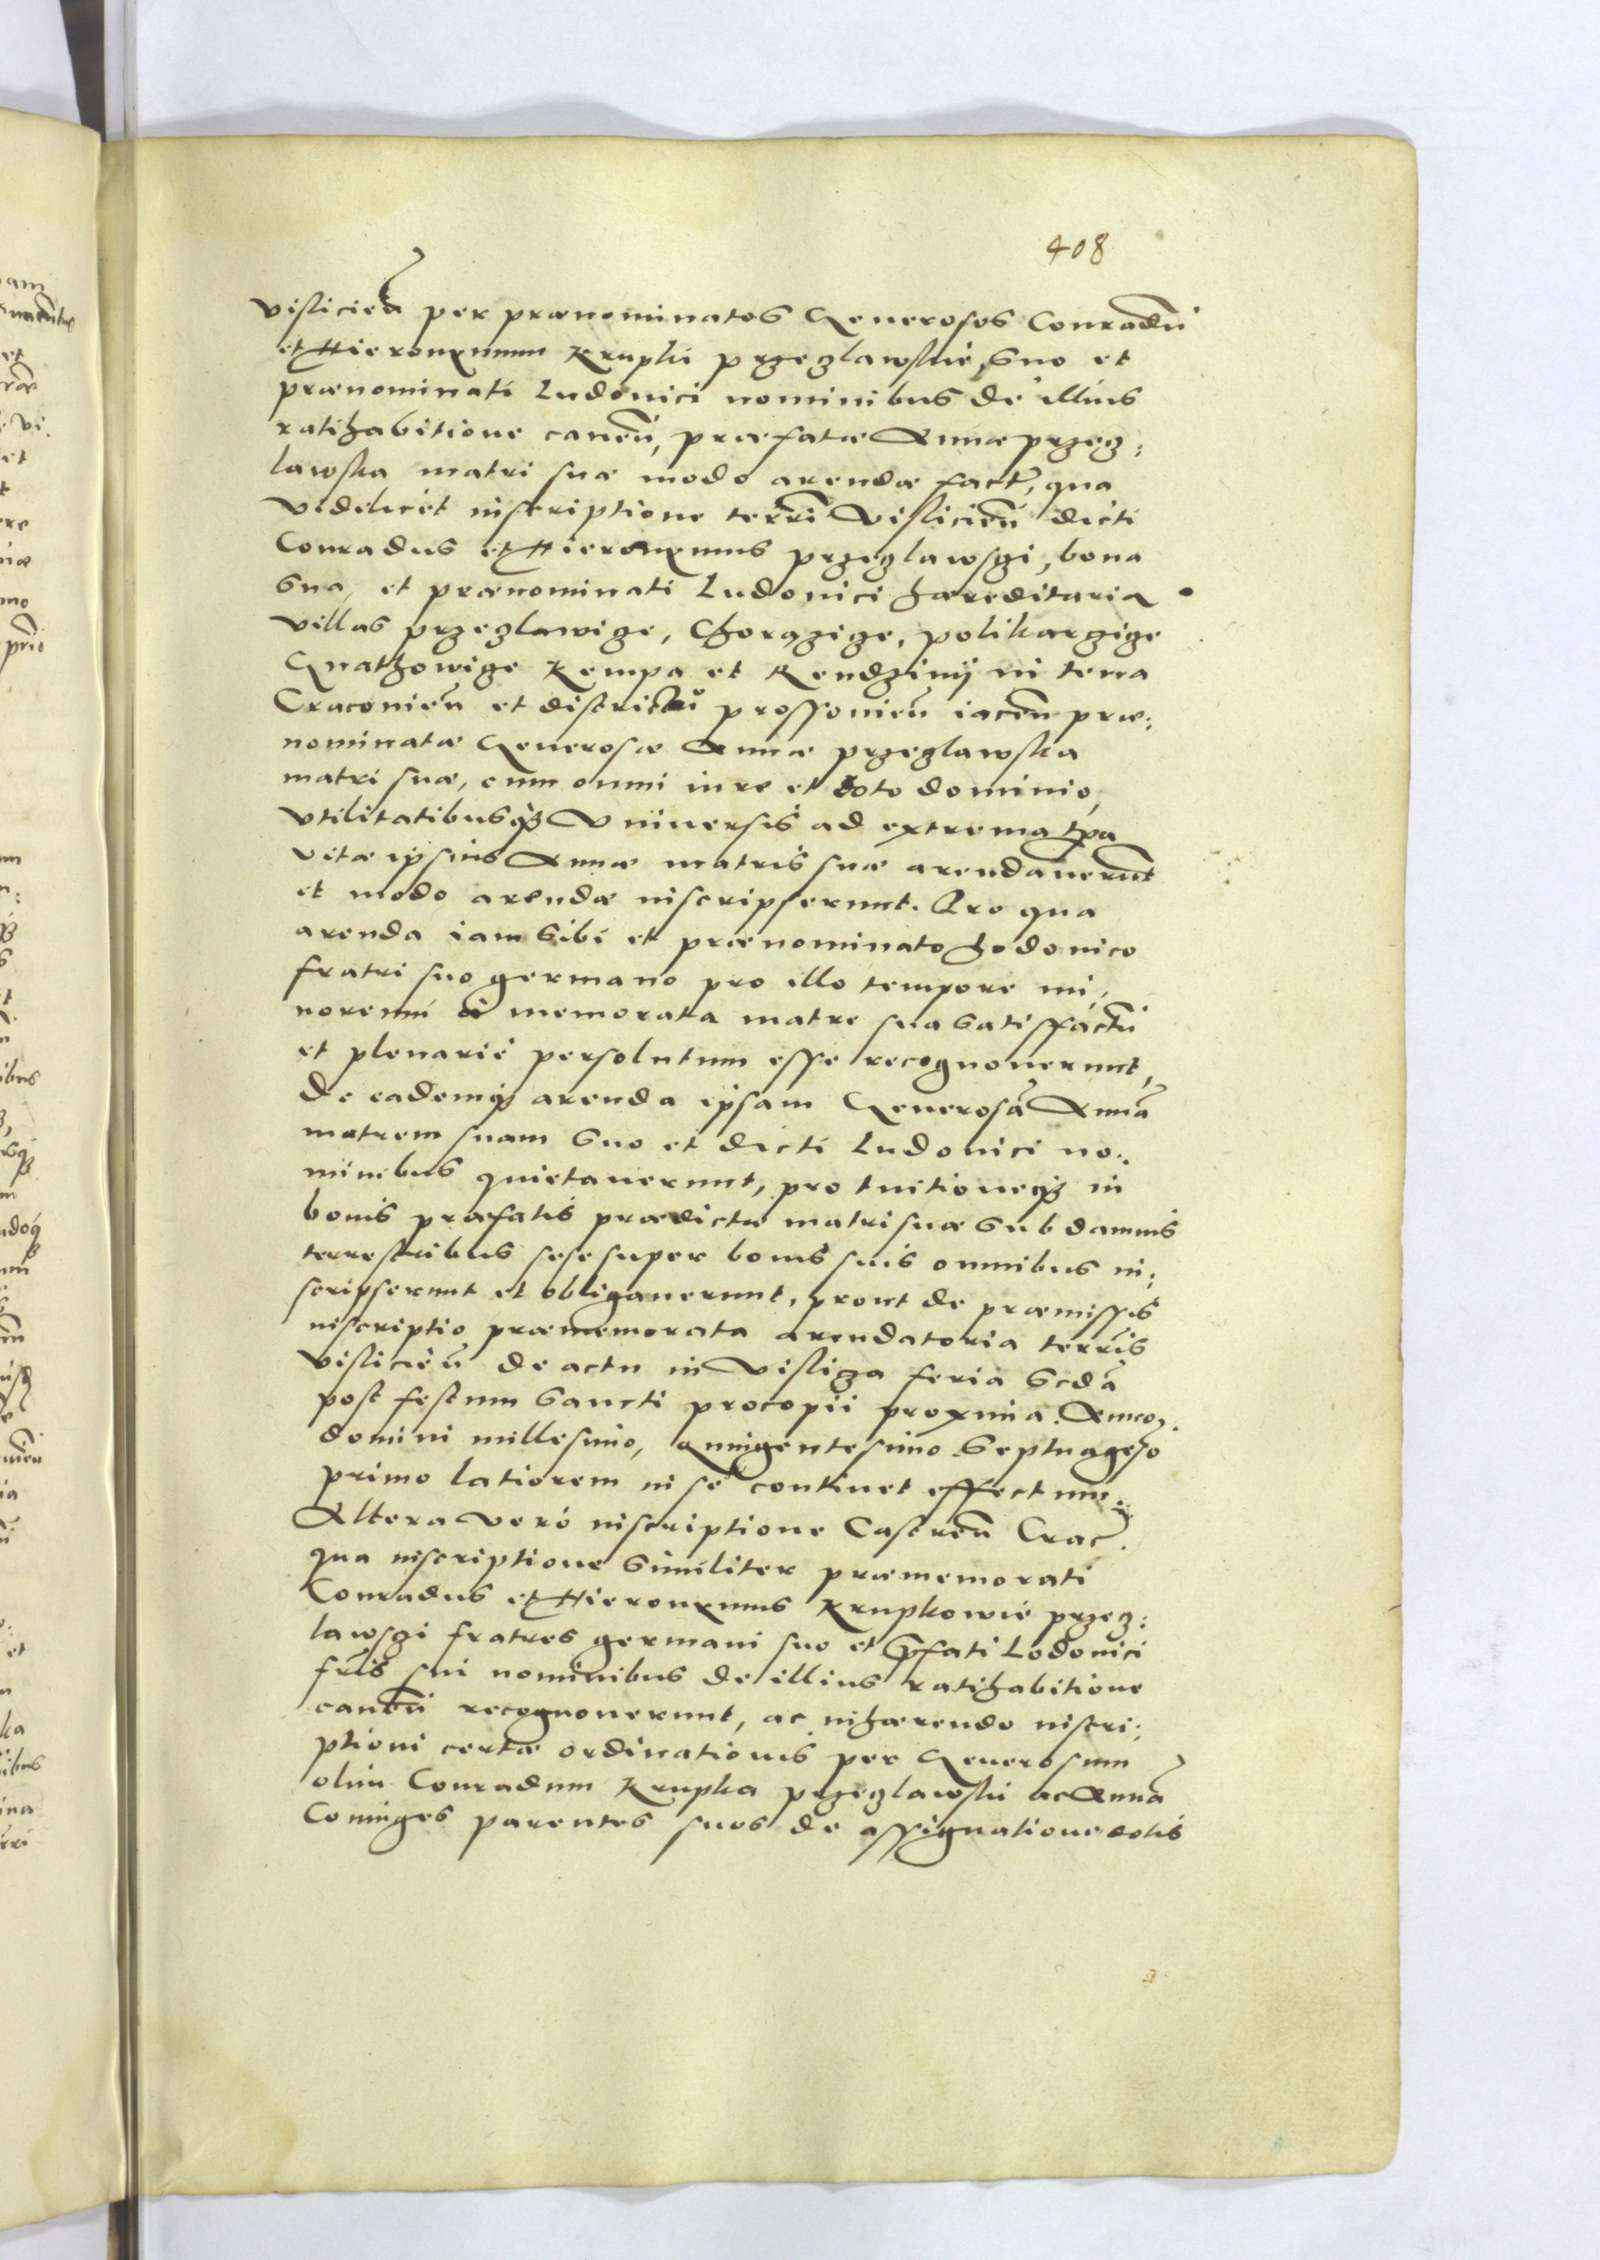 408
Vislicień per prænominatos Generosos Conradũ
et Hieronymum Krupki przeczlawskié, suo et
prænominati Ludouici nominibus de illius
ratihabitione caueń, præfatæ Annæ przecz:
lawska matri suæ modo arendæ fact, qua
videlicet inscriptione terrī Vislicień dicti
Conradus et Hieronymus przeczlawsci, bona
sua, et prænominati Ludouici hæreditaria
villas przeczlawice, Chorązice, polikarcice
Gnathowice Kempa et Kendzinij in terra
Cracouień et districtu prossouień iaceń præ:
nominatæ Generosæ Annæ przeczlawska
matri suæ, cum omni iure et toto dominio,
vtilitatibusq3 Vniuersis ad extrema tp̃a
vitæ ipsius Annæ matris suæ arendauerũt
et modo arendæ inscripserunt. Pro qua
arenda iam sibi et prænominato Lodouico
fratri suo germano pro illo tempore mi:
norenni à memorata matre sua satisfactũ
et plenariè persolutum esse recognouerunt,
de eademq3 arenda ipsam Generosã Annã
matrem suam suo et dicti Ludouici no:
minibus quietauerunt, pro tuitioneq3 in
bonis præfatis prædictæ matri suæ sub damnis
terrestribus sese super bonis suis omnibus in:
scripserunt et obligauerunt, prout de præmissis
inscriptio præmemorata arendatoria terrīs
Vislicień de actu in Visliza feria scdã
post festum Sancti procopii proxima. Anno
domini millesimo, quingentesimo Septuagesō
primo latiorem in se continet effectum.
Altera verò inscriptione Castreń Crac.
qua inscriptione similiter præmemorati
Conradus et Hieronymus Krupkowié przecz:
lawsci fratres germani suo et p̃fati Lodouici
fr̃is sui nominibus de illius ratihabitione
caueń recognouerunt, ac inhærendo inscri:
ptioni certæ ordinationis per Generosum
olim Conradum Krupka przeczlawski ac Annã
Coniuges parentes suos de assignatione dotis